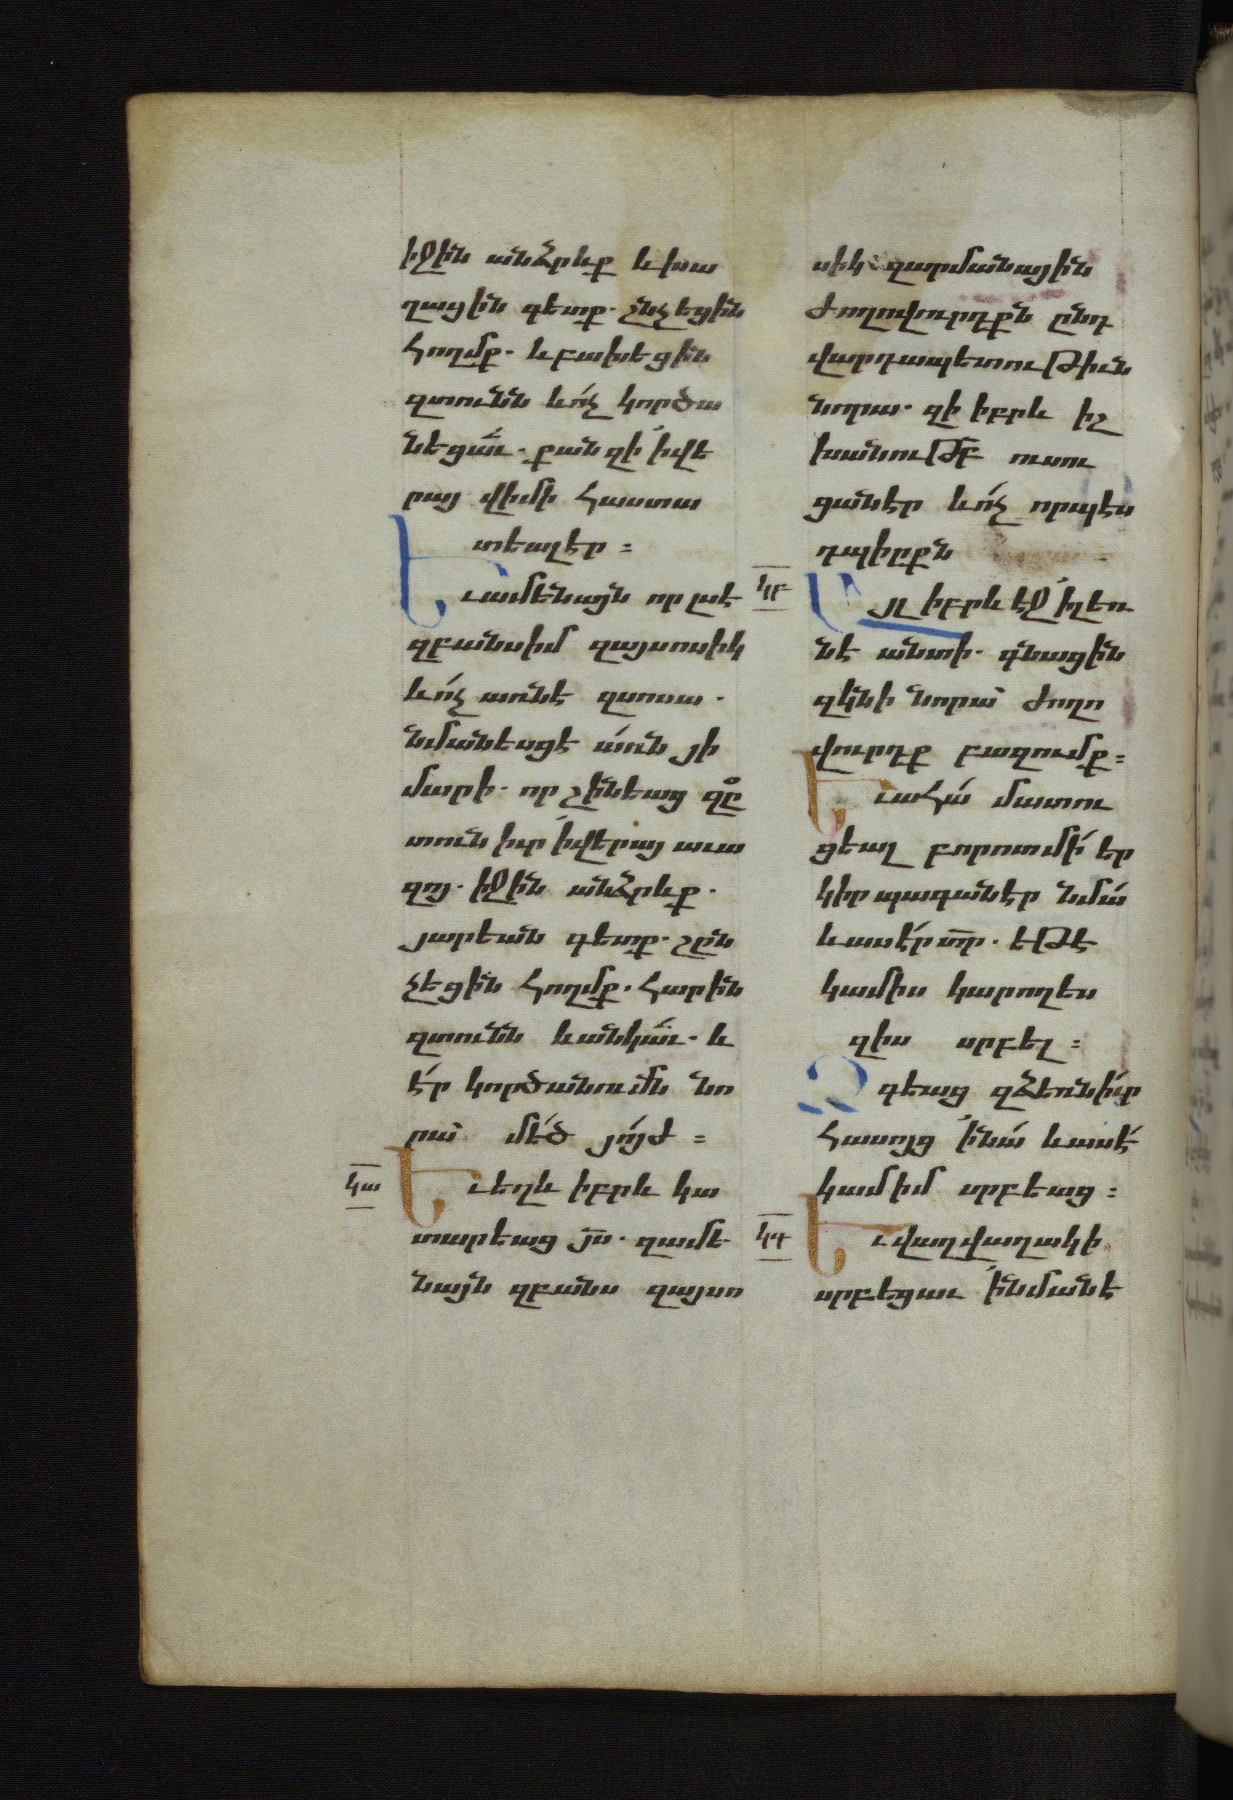 իջին անձրևք և խա
ղացին գետք. շնչեցին
հողմք. և բախեցին
զտունն և ոչ կործա
նեցաւ. քանզի ի վե
րայ վիմի հաստա
տեալ էր ։
Եւ ամենայն որ լսէ
զբանս իմ զայսոսիկ
և ոչ առնէ զսոսա.
նմանեսցէ առն յի
մարի. որ շինեաց զը
տուն իւր ի վերայ աւա
զոյ. իջին անձրևք.
յարեան գետք. շըն
չեցին հողմք. հարին
զտունն և անկաւ. և
էր կործանումն նո
րա մեծ յոյժ ։
կա
Եւ եղև իբրև կա
տարեաց յս. զամե
նայն զբանս զայսո
սիկ զարմանային
ժողովուրդքն ընդ
վարդապետութիւն
նորա. զի իբրև իշ
խանութբ ուսու
ցանէր և ոչ որպէս
դպիրքն
կբ
Այլ իբրև էջ ի լեռ
նէ անտի. գնացին
զկնի նորա ժողո
վուրդք բազումք ։
Եւ ահա մատու
ցեալ բորոտ մի եր
կիր պագանէր նմա
և ասէր տր. եթէ
կամիս կարող ես
զիս սրբել ։
Ձգեաց զձեռն իւր
հասոյց ի նա և ասէ
կամիմ սրբեաց ։
կգ
Եւ վաղվաղակի
սրբեցաւ ի նմանէ